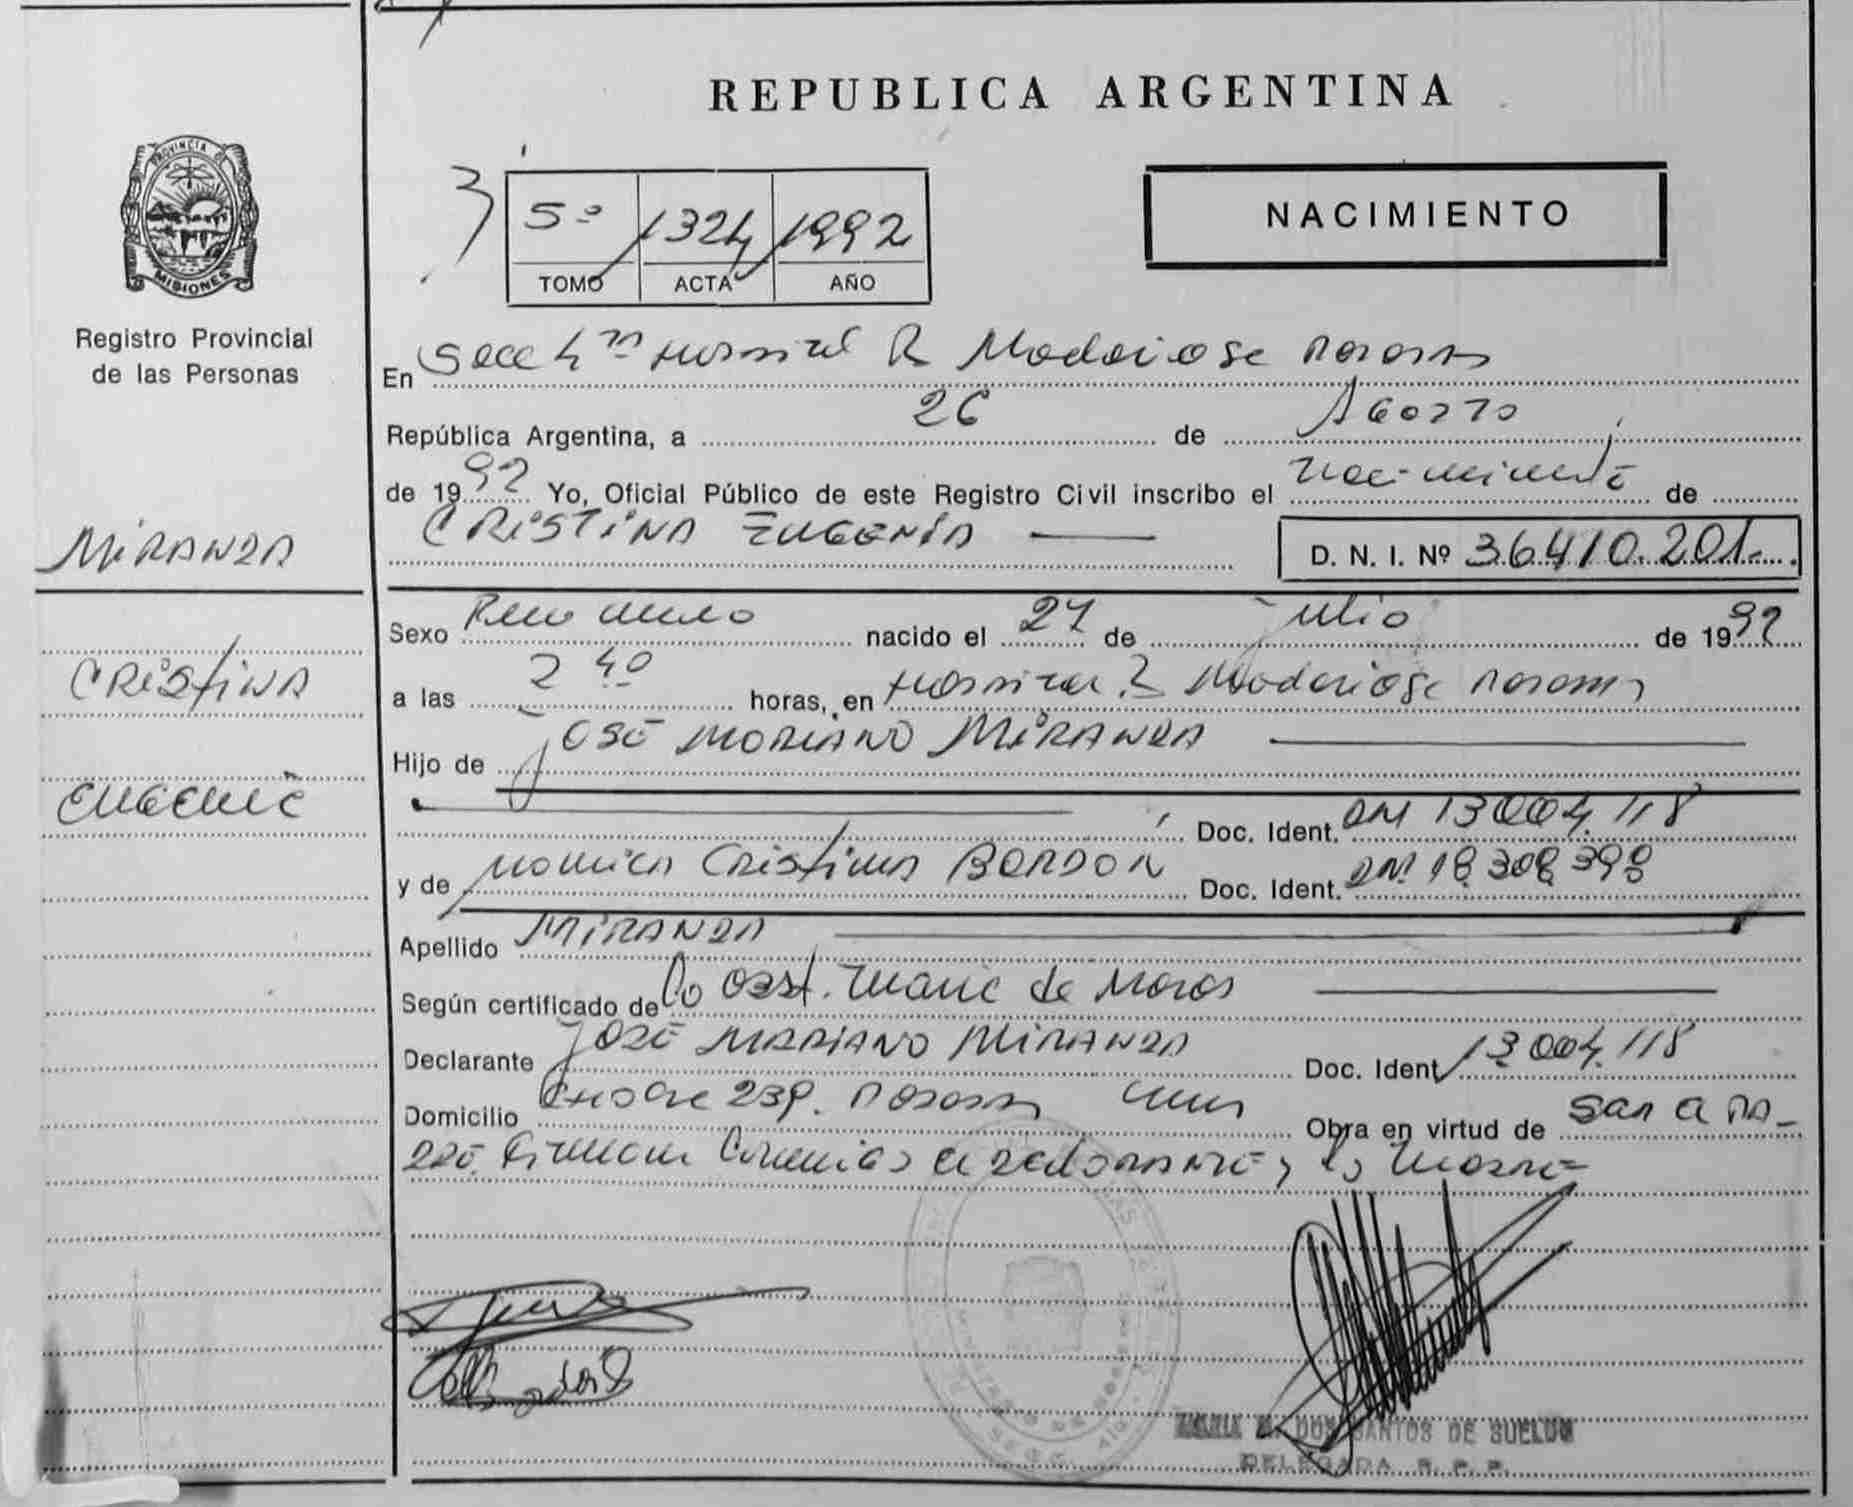 REPUBLICA ARGENTINA
PROVINCIA D
MISIONES
Registro Provincial
de las Personas
5º 1324 1992
TOMO ACTA AÑO
NACIMIENTO
En Secc 4ta Hospital R Madariaga Posadas
República Argentina, a 26 de Agosto
de 1992 Yo, Oficial Público de este Registro Civil inscribo el nacimiento de
CRISTINA EUGENIA
D. N. I. Nº 36.410.201.-
MIRANDA
CRISTINA
EUGENIA
Sexo Femenino nacido el 27 de Julio de 1992
a las 2 40 horas, en Hospital R Madariaga Posadas
Hijo de José MARIANO MIRANDA
Doc. Ident. DNI 13004.118
y de Monica Cristina BORDON Doc. Ident. DNI 18.308.398
Apellido MIRANDA
Según certificado de la Obst. de
Declarante José MARIANO MIRANDA Doc. Ident 13.004.118
Domicilio 239. Posadas Obra en virtud de ser el pa-
dre. Firman el declarante y la madre
DOS SANTOS DE SUELDO
DELEGADA R. P. P.